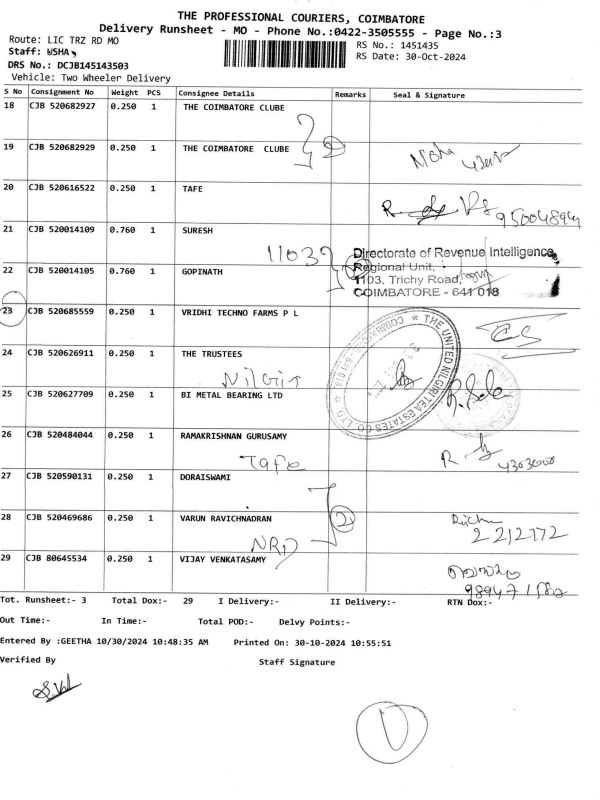 THE PROFESSIONAL COURIERS, COIMBATORE
Delivery Runsheet - MO - Phone No.:0422-3505555 - Page No.:3
Route: LIC TRZ RD MO
RS No.: 1451435
Staff: USHA
RS Date: 30-Oct-2024
DRS No.: DCJB145143503
Vehicle: Two Wheeler Delivery
S No Consignment No Weight PCS Consignee Details Remarks Seal & Signature
18 CJB 520682927 0.250 1 THE COIMBATORE CLUBE
2
19 CJB 520682929 0.250 1 THE COIMBATORE CLUBE
Nisha
20 CJB 520616522 0.250 1 TAFE
21 CJB 520014109 0.760 1 SURESH
1103
Directorate of Revenue Intelligence,
Regional Unit,
1103, Trichy Road,
COIMBATORE - 641 018
22 CJB 520014105 0.760 1 GOPINATH
23 CJB 520685559 0.250 1 VRIDHI TECHNO FARMS P L
THE UNITED NILGIRI TEA ESTATES CO LTD
24 CJB 520626911 0.250 1 THE TRUSTEES
25 CJB 520627709 0.250 1 BI METAL BEARING LTD
26 CJB 520484044 0.250 1 RAMAKRISHNAN GURUSAMY
Tafe
27 CJB 520590131 0.250 1 DORAISWAMI
2
28 CJB 520469686 0.250 1 VARUN RAVICHNADRAN
2212172
29 CJB 80645534 0.250 1 VIJAY VENKATASAMY
Tot. Runsheet:- 3 Total Dox:- 29 I Delivery:- II Delivery:- RTN Dox:-
Out Time:- In Time:- Total POD:- Delvy Points:-
Entered By :GEETHA 10/30/2024 10:48:35 AM Printed On: 30-10-2024 10:55:51
Verified By Staff Signature